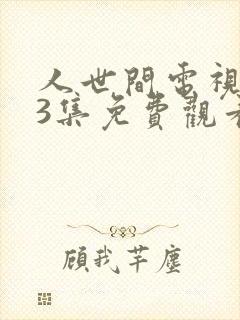 人世間電視
3集免費觀看
顧我芊塵